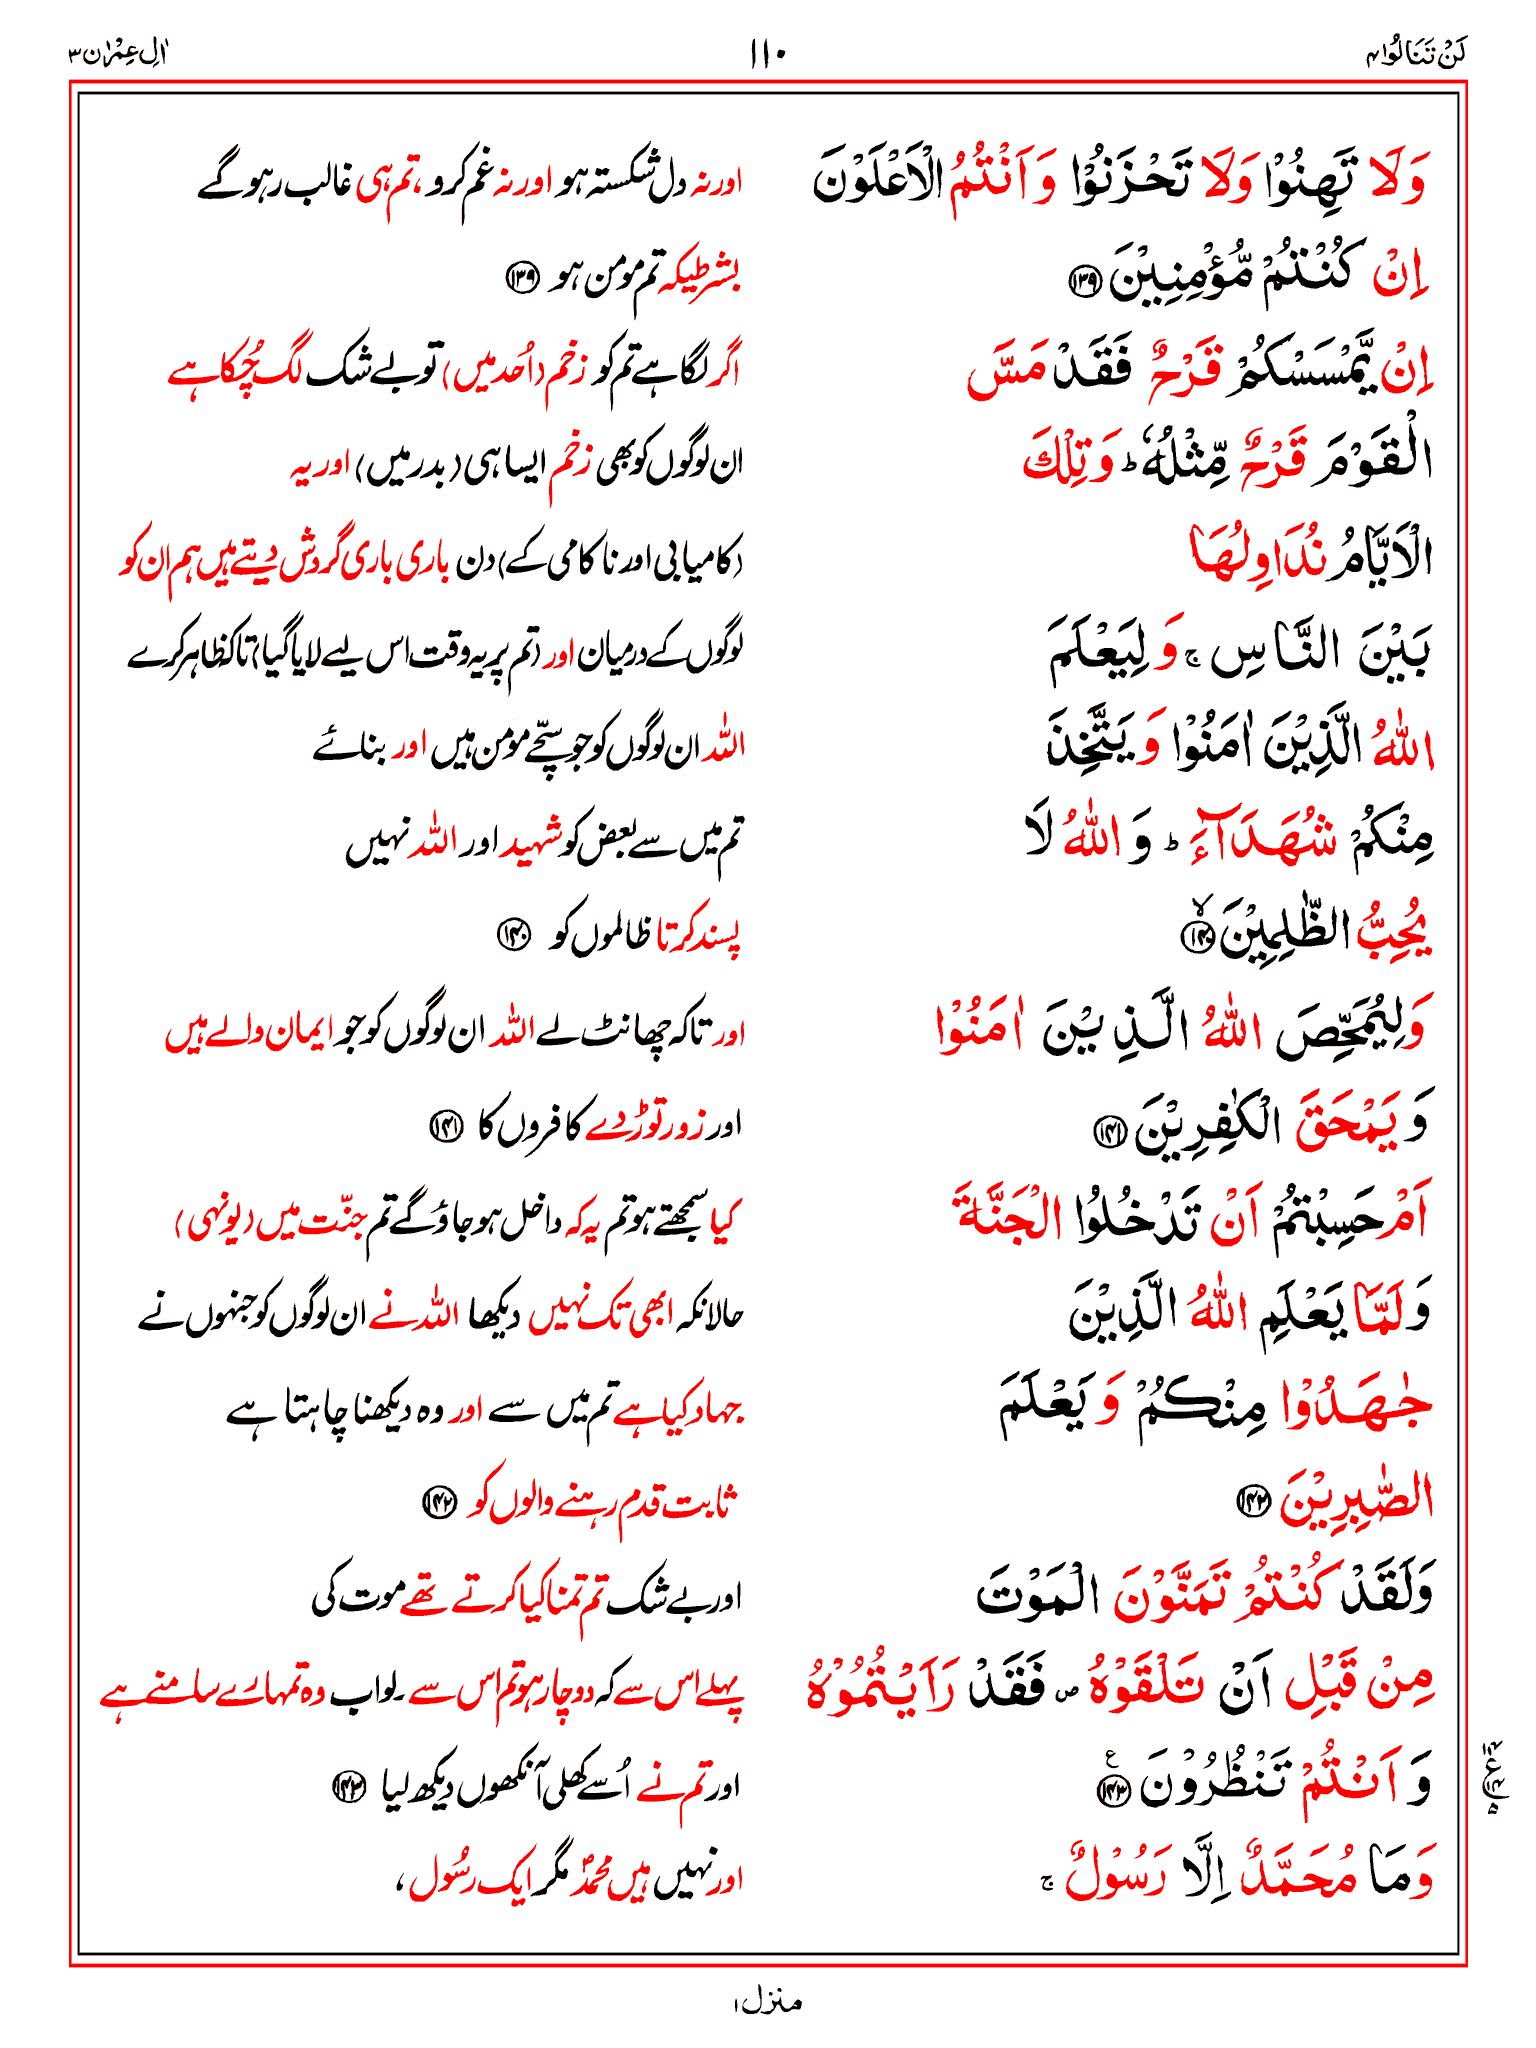 لَنْ تَنَالُوا۴ ۱۱۰ اٰلِ عِمْرٰن۳
وَلَا تَهِنُوْا وَلَا تَحْزَنُوْا وَاَنْتُمُ الْاَعْلَوْنَ اور نہ دل شکستہ ہو اور نہ غم کرو، تم ہی غالب رہو گے
اِنْ كُنْتُمْ مُّؤْمِنِيْنَ ۱۳۹ بشرطیکہ تم مومن ہو ۱۳۹
اِنْ يَّمْسَسْكُمْ قَرْحٌ فَقَدْ مَسَّ اگر لگا ہے تم کو زخم (اُحد میں) تو بے شک لگ چُکا ہے
الْقَوْمَ قَرْحٌ مِّثْلُهٗ ؕ وَتِلْكَ ان لوگوں کو بھی زخم ایسا ہی (بدر میں) اور یہ
الْاَيَّامُ نُدَاوِلُهَا (کامیابی اور ناکامی کے) دن باری باری گردش دیتے ہیں ہم ان کو
بَيْنَ النَّاسِ ۚ وَ لِيَعْلَمَ لوگوں کے درمیان اور (تم پر یہ وقت اس لیے لایا گیا) تاکہ ظاہر کرے
اللّٰهُ الَّذِيْنَ اٰمَنُوْا وَ يَتَّخِذَ اللہ ان لوگوں کو جو سچّے مومن ہیں اور بنائے
مِنْكُمْ شُهَدَآءَ ؕ وَ اللّٰهُ لَا تم میں سے بعض کو شہید اور اللہ نہیں
يُحِبُّ الظّٰلِمِيْنَ ۙ۱۴۰ پسند کرتا ظالموں کو ۱۴۰
وَلِيُمَحِّصَ اللّٰهُ الَّذِيْنَ اٰمَنُوْا اور تاکہ چھانٹ لے اللہ ان لوگوں کو جو ایمان والے ہیں
وَ يَمْحَقَ الْكٰفِرِيْنَ ۱۴۱ اور زور توڑ دے کافروں کا ۱۴۱
اَمْ حَسِبْتُمْ اَنْ تَدْخُلُوا الْجَنَّةَ کیا سمجھتے ہو تم یہ کہ داخل ہو جاؤ گے تم جنّت میں (یونہی)
وَ لَمَّا يَعْلَمِ اللّٰهُ الَّذِيْنَ حالانکہ ابھی تک نہیں دیکھا اللہ نے ان لوگوں کو جنہوں نے
جٰهَدُوْا مِنْكُمْ وَ يَعْلَمَ جہاد کیا ہے تم میں سے اور وہ دیکھنا چاہتا ہے
الصّٰبِرِيْنَ ۱۴۲ ثابت قدم رہنے والوں کو ۱۴۲
وَلَقَدْ كُنْتُمْ تَمَنَّوْنَ الْمَوْتَ اور بے شک تم تمنا کیا کرتے تھے موت کی
مِنْ قَبْلِ اَنْ تَلْقَوْهُ ۪ فَقَدْ رَاَيْتُمُوْهُ پہلے اس سے کہ دوچار ہو تم اس سے۔ لو اب وہ تمہارے سامنے ہے
وَ اَنْتُمْ تَنْظُرُوْنَ ۱۴۳ ع اور تم نے اُسے کھلی آنکھوں دیکھ لیا ۱۴۳
وَمَا مُحَمَّدٌ اِلَّا رَسُوْلٌ ۚ اور نہیں ہیں محمدؐ مگر ایک رسُول،
منزل۱